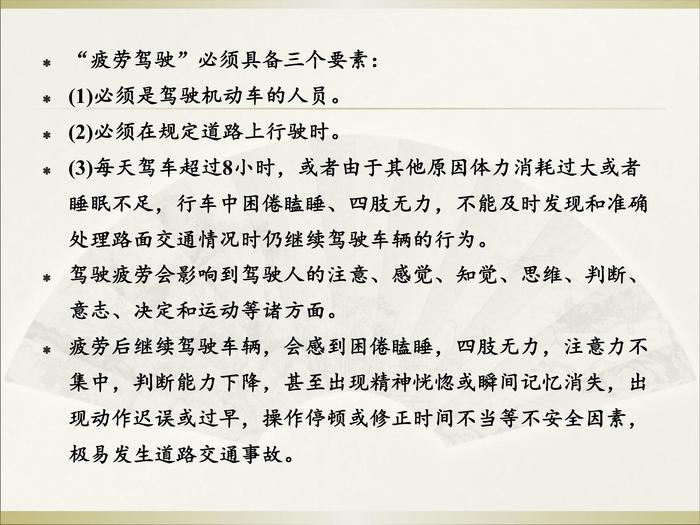 “疲劳驾驶”必须具备三个要素：
(1)必须是驾驶机动车的人员。
(2)必须在规定道路上行驶时。
(3)每天驾车超过8小时，或者由于其他原因体力消耗过大或者
睡眠不足，行车中困倦瞌睡、四肢无力，不能及时发现和准确
处理路面交通情况时仍继续驾驶车辆的行为。
驾驶疲劳会影响到驾驶人的注意、感觉、知觉、思维、判断、
意志、决定和运动等诸方面。
疲劳后继续驾驶车辆，会感到困倦瞌睡，四肢无力，注意力不
集中，判断能力下降，甚至出现精神恍惚或瞬间记忆消失，出
现动作迟误或过早，操作停顿或修正时间不当等不安全因素，
极易发生道路交通事故。